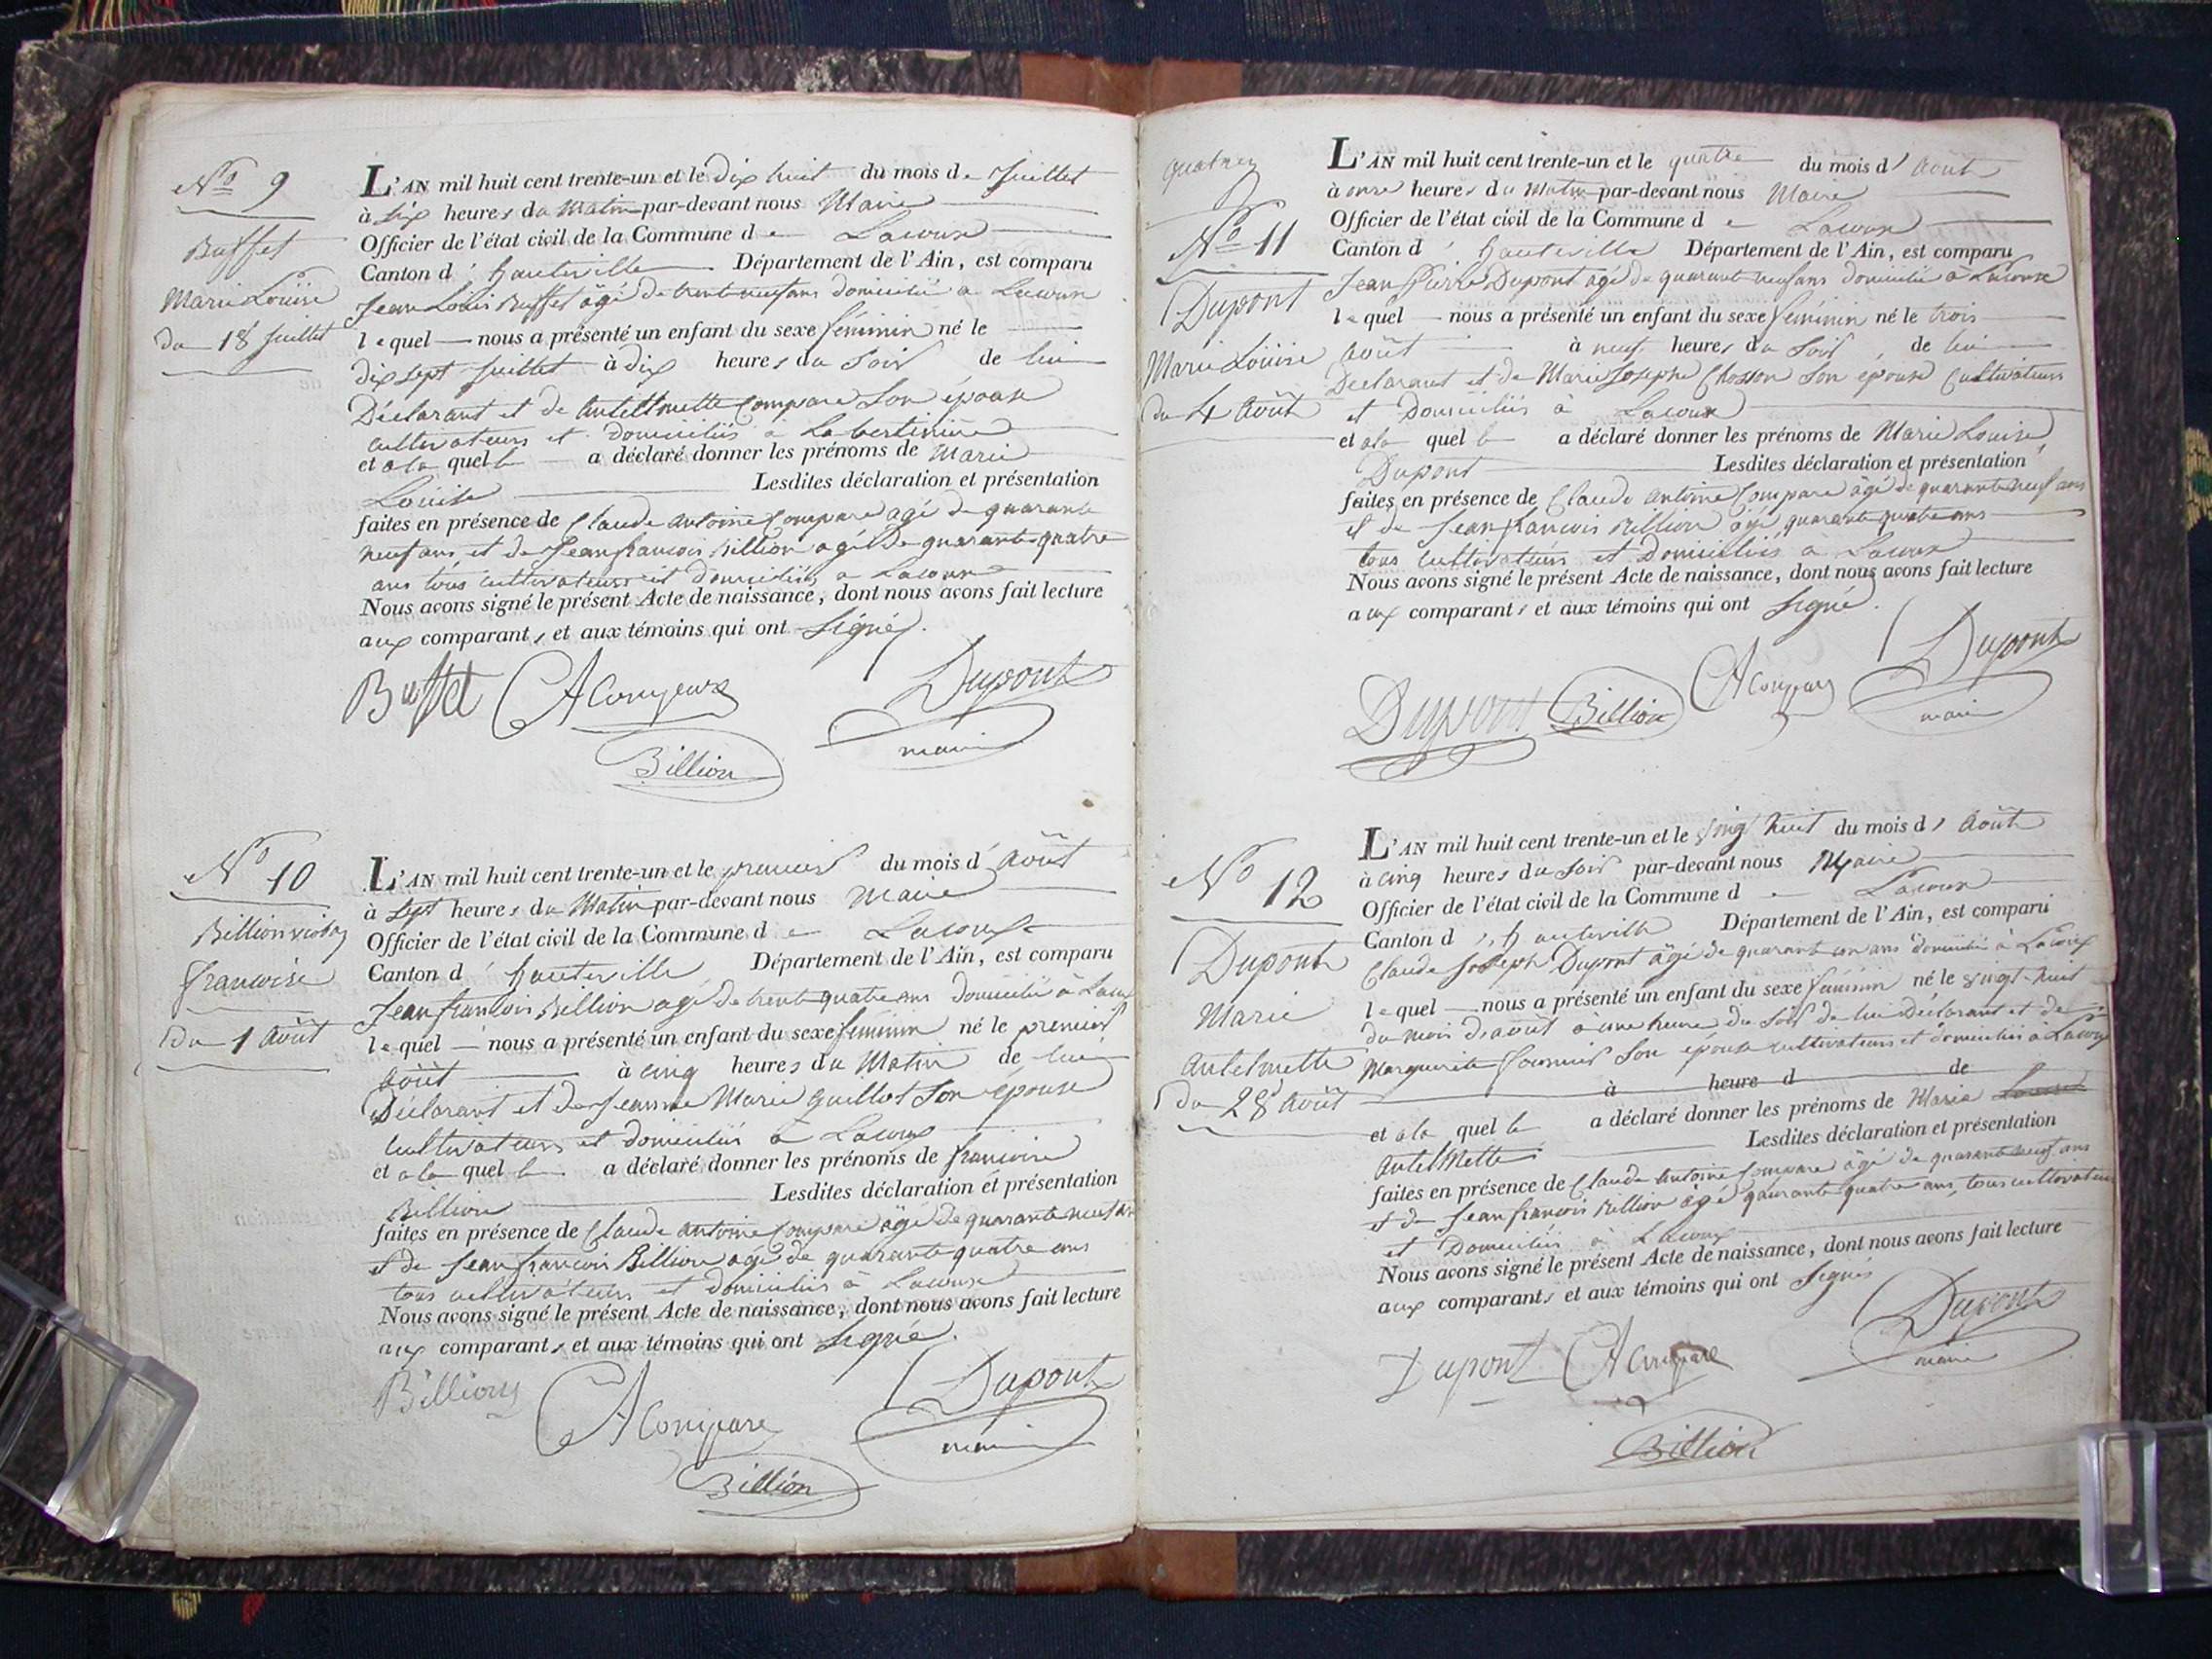 N° 9
Buffet
Marie Louise
du 18 Juillet
L'AN mil huit cent trente-un et le dix huit du mois de Juillet
à six heures du Matin par-devant nous Maire
Officier de l'état civil de la Commune de Lacoux
Canton d' hauteville Département de l'Ain, est comparu
Jean Louis Buffet âgé de trente neuf ans domicilié a Lacoux
lequel nous a présenté un enfant du sexe féminin né le
dix sept Juillet à dix heures du Soir de lui
Déclarant et de Antelmette Compare Son épouse
cultivateurs et domiciliés a
et a la quelle a déclaré donner les prénoms de Marie
Louise Lesdites déclaration et présentation
faites en présence de Claude antoine Compare agé de quarante
neuf ans et de Jean francois Billion agé de quarante quatre
ans tous cultivateurs et domiciliés a Lacoux
Nous avons signé le présent Acte de naissance, dont nous avons fait lecture
aux comparants et aux témoins qui ont Signé.
Buffet CA Compare Dupont
maire
Billion
N° 10
Billion
francoise
Du 1 Août
L'AN mil huit cent trente-un et le premier du mois d' Août
à Sept heures du Matin par-devant nous Maire
Officier de l'état civil de la Commune de Lacoux
Canton d' hauteville Département de l'Ain, est comparu
Jean francois Billion agé de trente quatre ans domicilié à Lacoux
lequel nous a présenté un enfant du sexe féminin né le premier
Août à cinq heures du Matin de lui
Déclarant et de Jeanne Marie Guillot Son épouse
cultivateurs et domiciliés a Lacoux
et a la quelle a déclaré donner les prénoms de francoise
Billion Lesdites déclaration et présentation
faites en présence de Claude antoine Compare âgé de quarante neuf ans
et de Jean francois Billion agé de quarante quatre ans
tous cultivateurs et domiciliés à Lacoux
Nous avons signé le présent Acte de naissance, dont nous avons fait lecture
aux comparants et aux témoins qui ont Signé.
Billion CA Compare Dupont
maire
Billion
N° 11
Dupont
Marie Louise
du 4 Août
L'AN mil huit cent trente-un et le quatre du mois d' Août
à onze heures du Matin par-devant nous Maire
Officier de l'état civil de la Commune de Lacoux
Canton d' hauteville Département de l'Ain, est comparu
Jean Pierre Dupont agé de quarante neuf ans domicilié à Lacoux
lequel nous a présenté un enfant du sexe féminin né le trois
Août à neuf heures du Soir de lui
Declarant et de Marie Josephe Chosson Son epouse Cultivateurs
et Domiciliés à Lacoux
et a la quelle a déclaré donner les prénoms de Marie Louise
Dupont Lesdites déclaration et présentation
faites en présence de Claude antoine Compare âgé de quarante neuf ans
et de Jean francois Billion âgé quarante quatre ans
tous Cultivateurs et Domiciliés à Lacoux
Nous avons signé le présent Acte de naissance, dont nous avons fait lecture
aux comparants et aux témoins qui ont Signé.
Dupont Billion CA Compare Dupont
maire
N° 12
Dupont
Marie
Antelmette
Du 28 Août
L'AN mil huit cent trente-un et le vingt huit du mois d' Août
à cinq heures du Soir par-devant nous Maire
Officier de l'état civil de la Commune de Lacoux
Canton d' hauteville Département de l'Ain, est comparu
Claude Joseph Dupont âgé de quarante un ans domicilié à Lacoux
lequel nous a présenté un enfant du sexe féminin né le vingt-huit
du mois d'août à une heure du Soir de lui déclarant et de
Marguerite Fournier Son épouse cultivateurs et domiciliés à Lacoux
à heure d de
et a la quelle a déclaré donner les prénoms de Marie Louise
Antelmette Lesdites déclaration et présentation
faites en présence de Claude Antoine Compare âgé de quarante neuf ans
et de Jean francois Billion âgé quarante quatre ans, tous cultivateurs
et Domiciliés à Lacoux
Nous avons signé le présent Acte de naissance, dont nous avons fait lecture
aux comparants et aux témoins qui ont Signés
Dupont CA Compare Dupont
maire
Billion